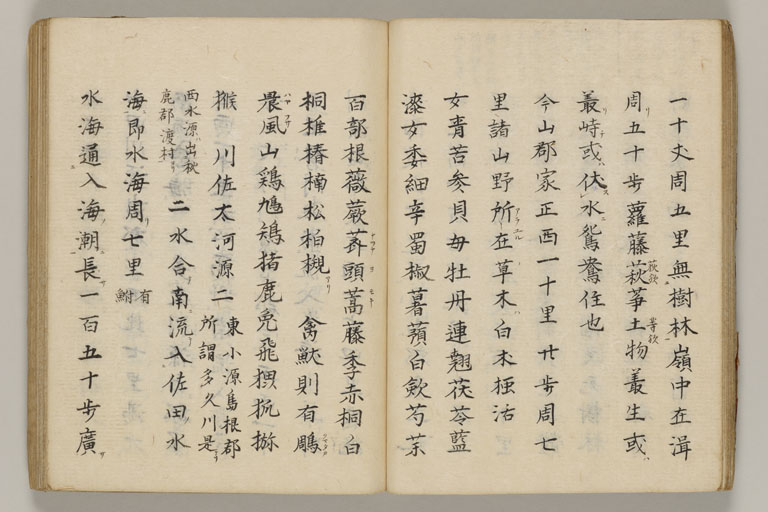 一十丈周五里無樹林嶺中在湒
周五十步蘿藤萩荢土物叢生或
叢峙或伏水鴛鴦住也
今山郡家正西一十里廾步周七
里諸山野所在草木白木極活
女青苦參貝母牡丹連翹茯苓藍
漆女委細辛蜀椒暑蕷白歛芍茱
百部根薇蕨薺頭蒿藤季赤桐白
桐椎椿楠松柏槻 禽獣則有鵰
晨風山鶏鳩鴙猪鹿兎飛猥狐獼
猴 川佐太河源二 東小源島根郡 所謂多久川是
西水源出秋 鹿郡渡村 二水合南流入佐田水
海即水海周七里 有鮒
水海通入海潮長一百五十步廣